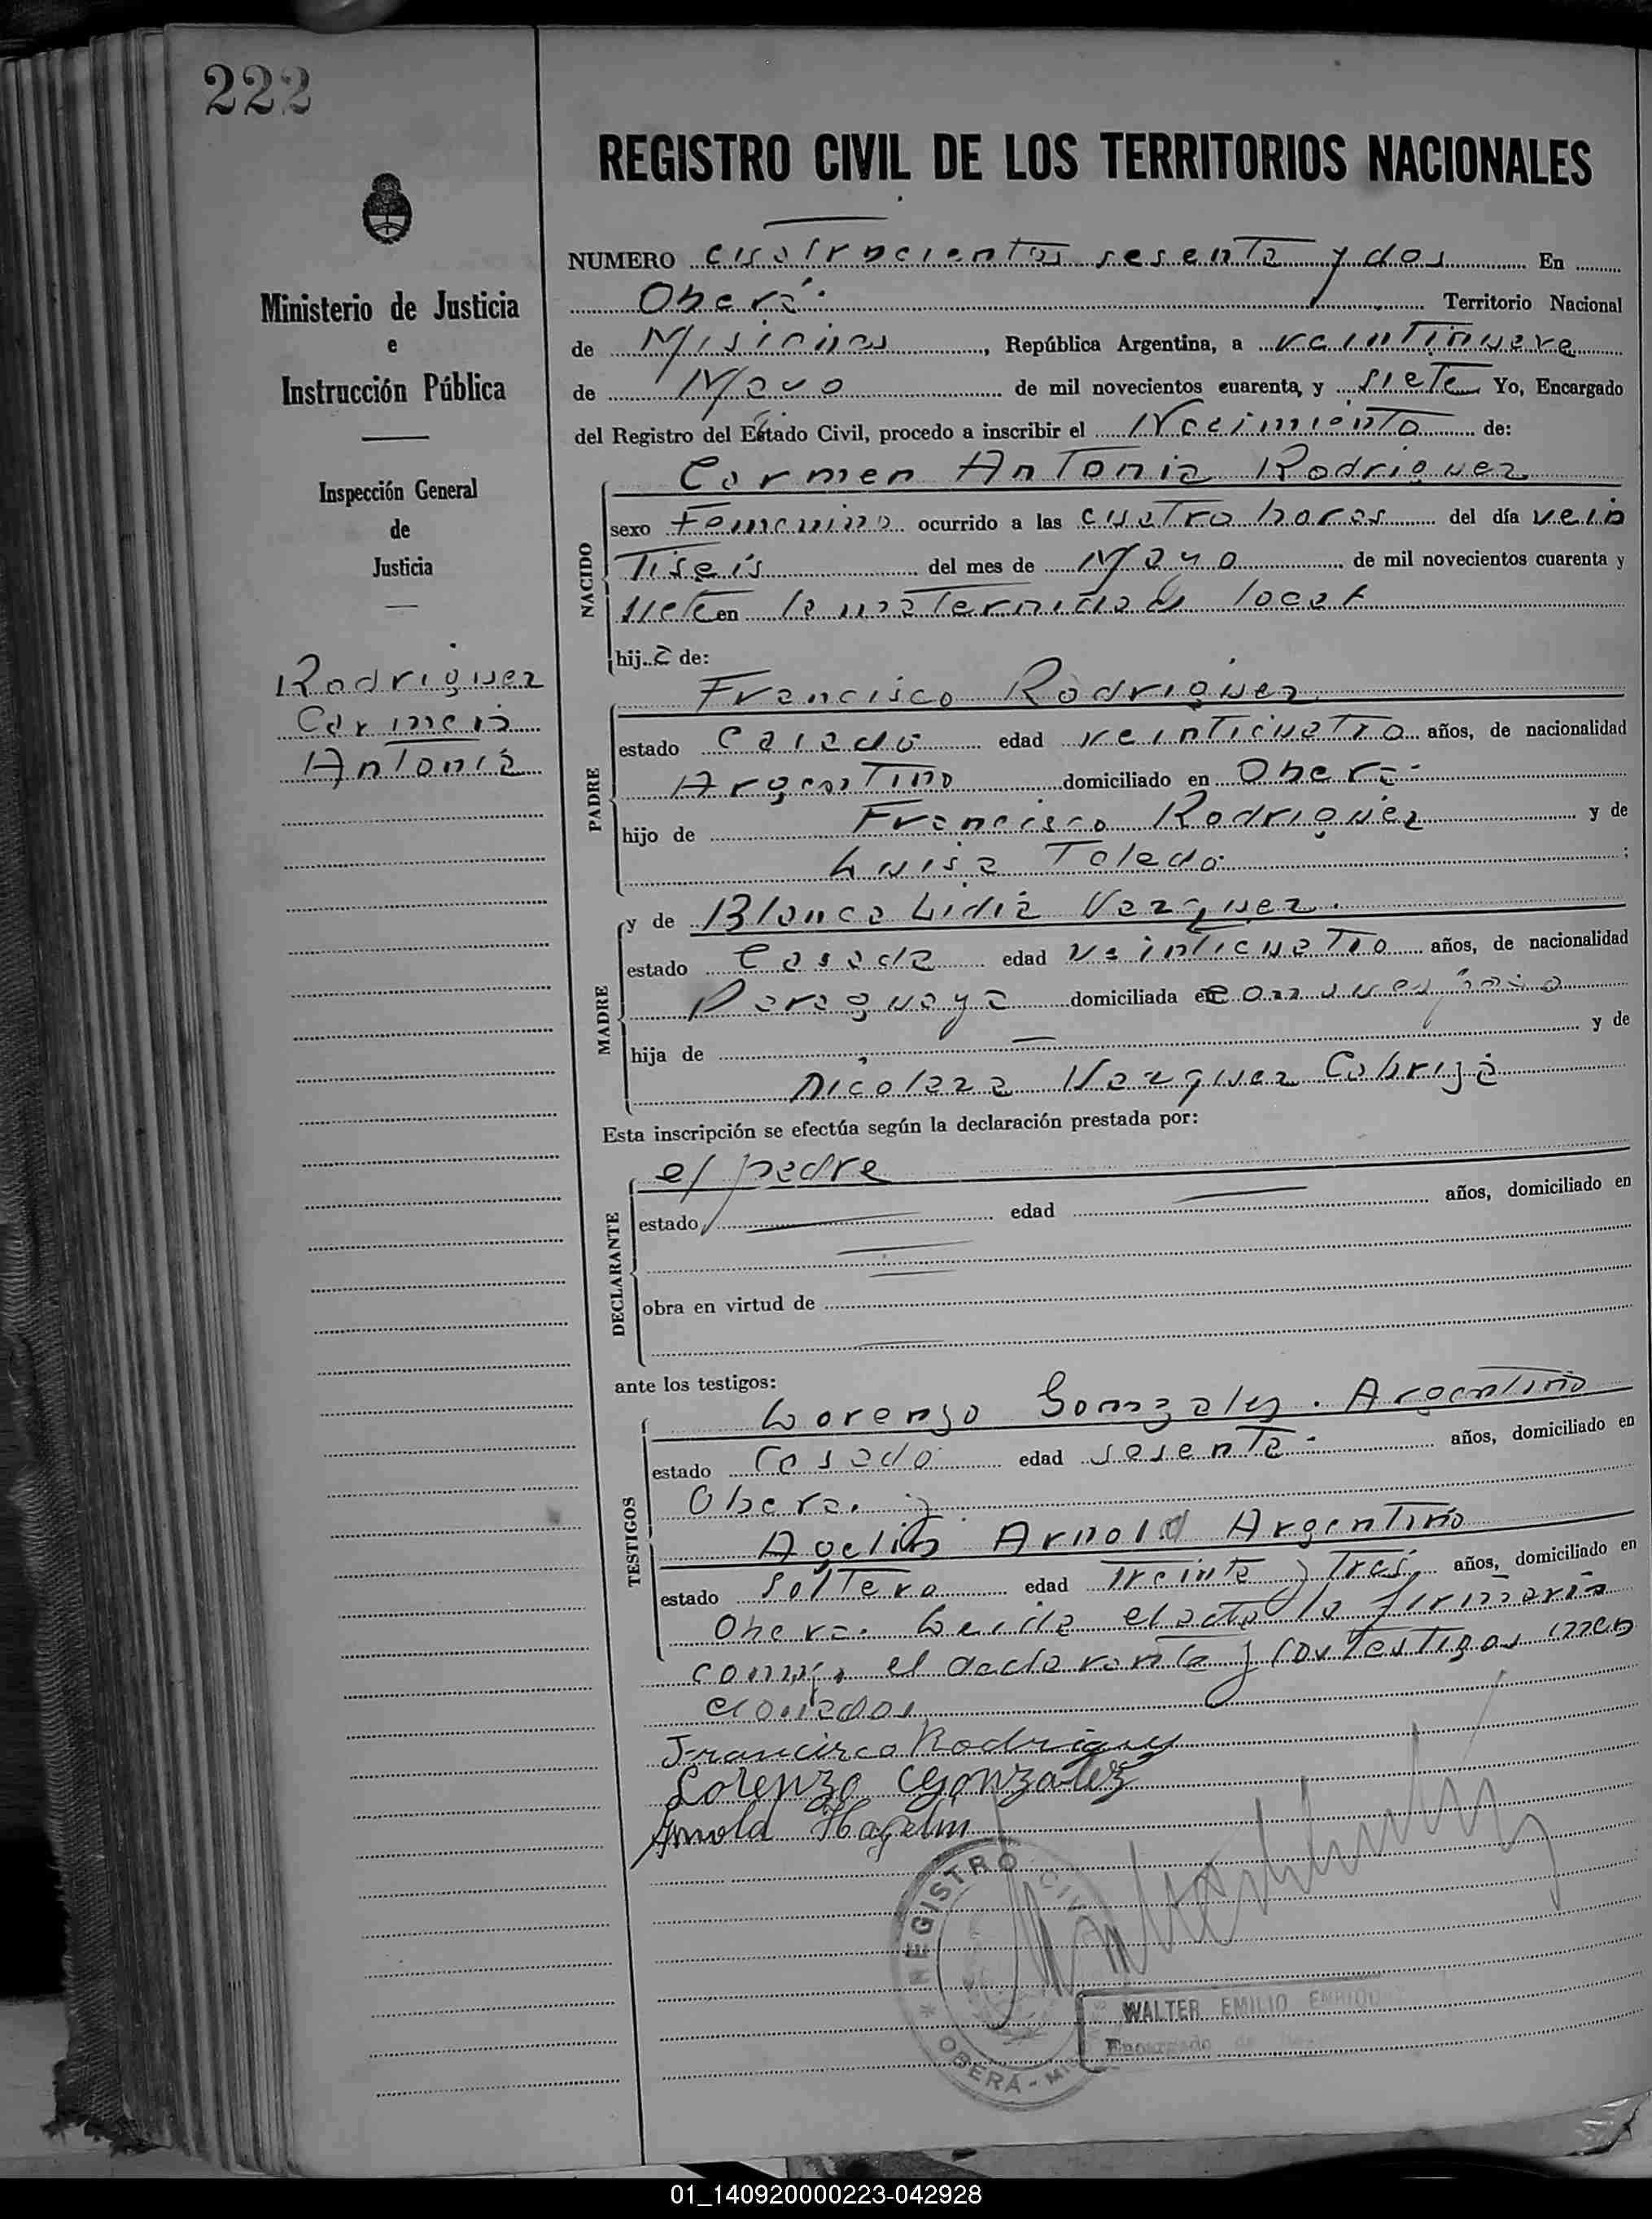 222
REGISTRO CIVIL DE LOS TERRITORIOS NACIONALES
Ministerio de Justicia
e
Instrucción Pública
Inspección General
de
Justicia
Rodriguez
Carmen
Antonia
NUMERO cuatrocientos sesenta y dos En
Oberá. Territorio Nacional
de Misiones, República Argentina, a veintinueve
de Mayo de mil novecientos cuarenta, y siete Yo, Encargado
del Registro del Estado Civil, procedo a inscribir el Nacimiento de:
Carmen Antonia Rodriguez
NACIDO
sexo Femenino ocurrido a las cuatro horas del día vein
tiseis del mes de Mayo de mil novecientos cuarenta y
siete en la maternidad local
hija de:
Francisco Rodriguez
PADRE
estado Casado edad veinticuatro años, de nacionalidad
Argentino domiciliado en Oberá
hijo de Francisco Rodriguez y de
Luisa Toledo ;
MADRE
y de Blanca Lidia Vazquez.
estado Casada edad veinticuatro años, de nacionalidad
Paraguaya domiciliada en con su esposo
hija de — y de
Nicolaza Vazquez Cabriza
Esta inscripción se efectúa según la declaración prestada por:
el padre
DECLARANTE
estado edad años, domiciliado en
obra en virtud de
ante los testigos:
TESTIGOS
Lorenzo Gonzalez. Argentino
estado Casado edad sesenta años, domiciliado en
Obera. y
Agelin Arnold Argentino
estado soltero edad treinta y tres años, domiciliado en
Obera. Leida el acta la firmaron
conmigo el declarante y los testigos men
cionados
Francisco Rodriguez
Lorenzo Gonzalez
Arnold Hagelin
REGISTRO CIVIL
* OBERÁ - MIS
WALTER EMILIO ENRIQUE
Encargado de
01_140920000223-042928